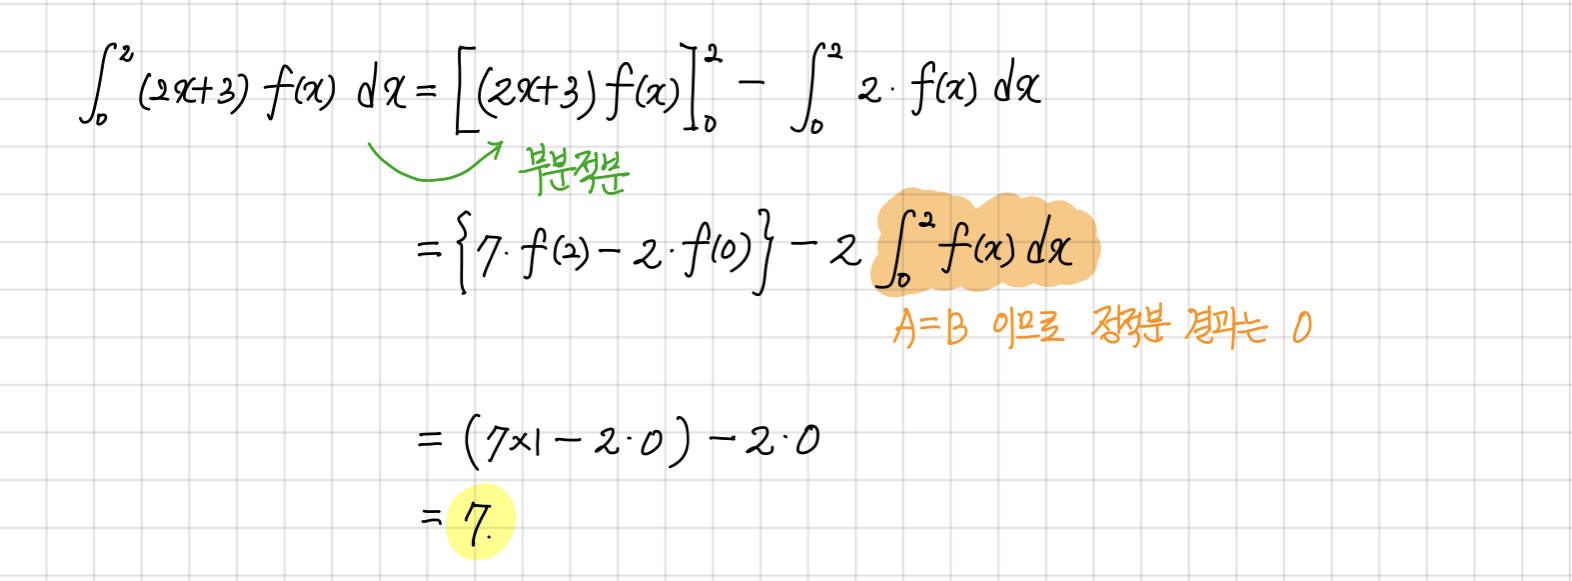 ∫₀² (2x+3) f(x) dx = [(2x+3) f(x)]₀² - ∫₀² 2· f(x) dx
부분적분
= {7· f(2) - 2· f(0)} - 2 ∫₀² f(x) dx
A=B 이므로 정적분 결과는 0
= (7×1 - 2·0) - 2·0
= 7.